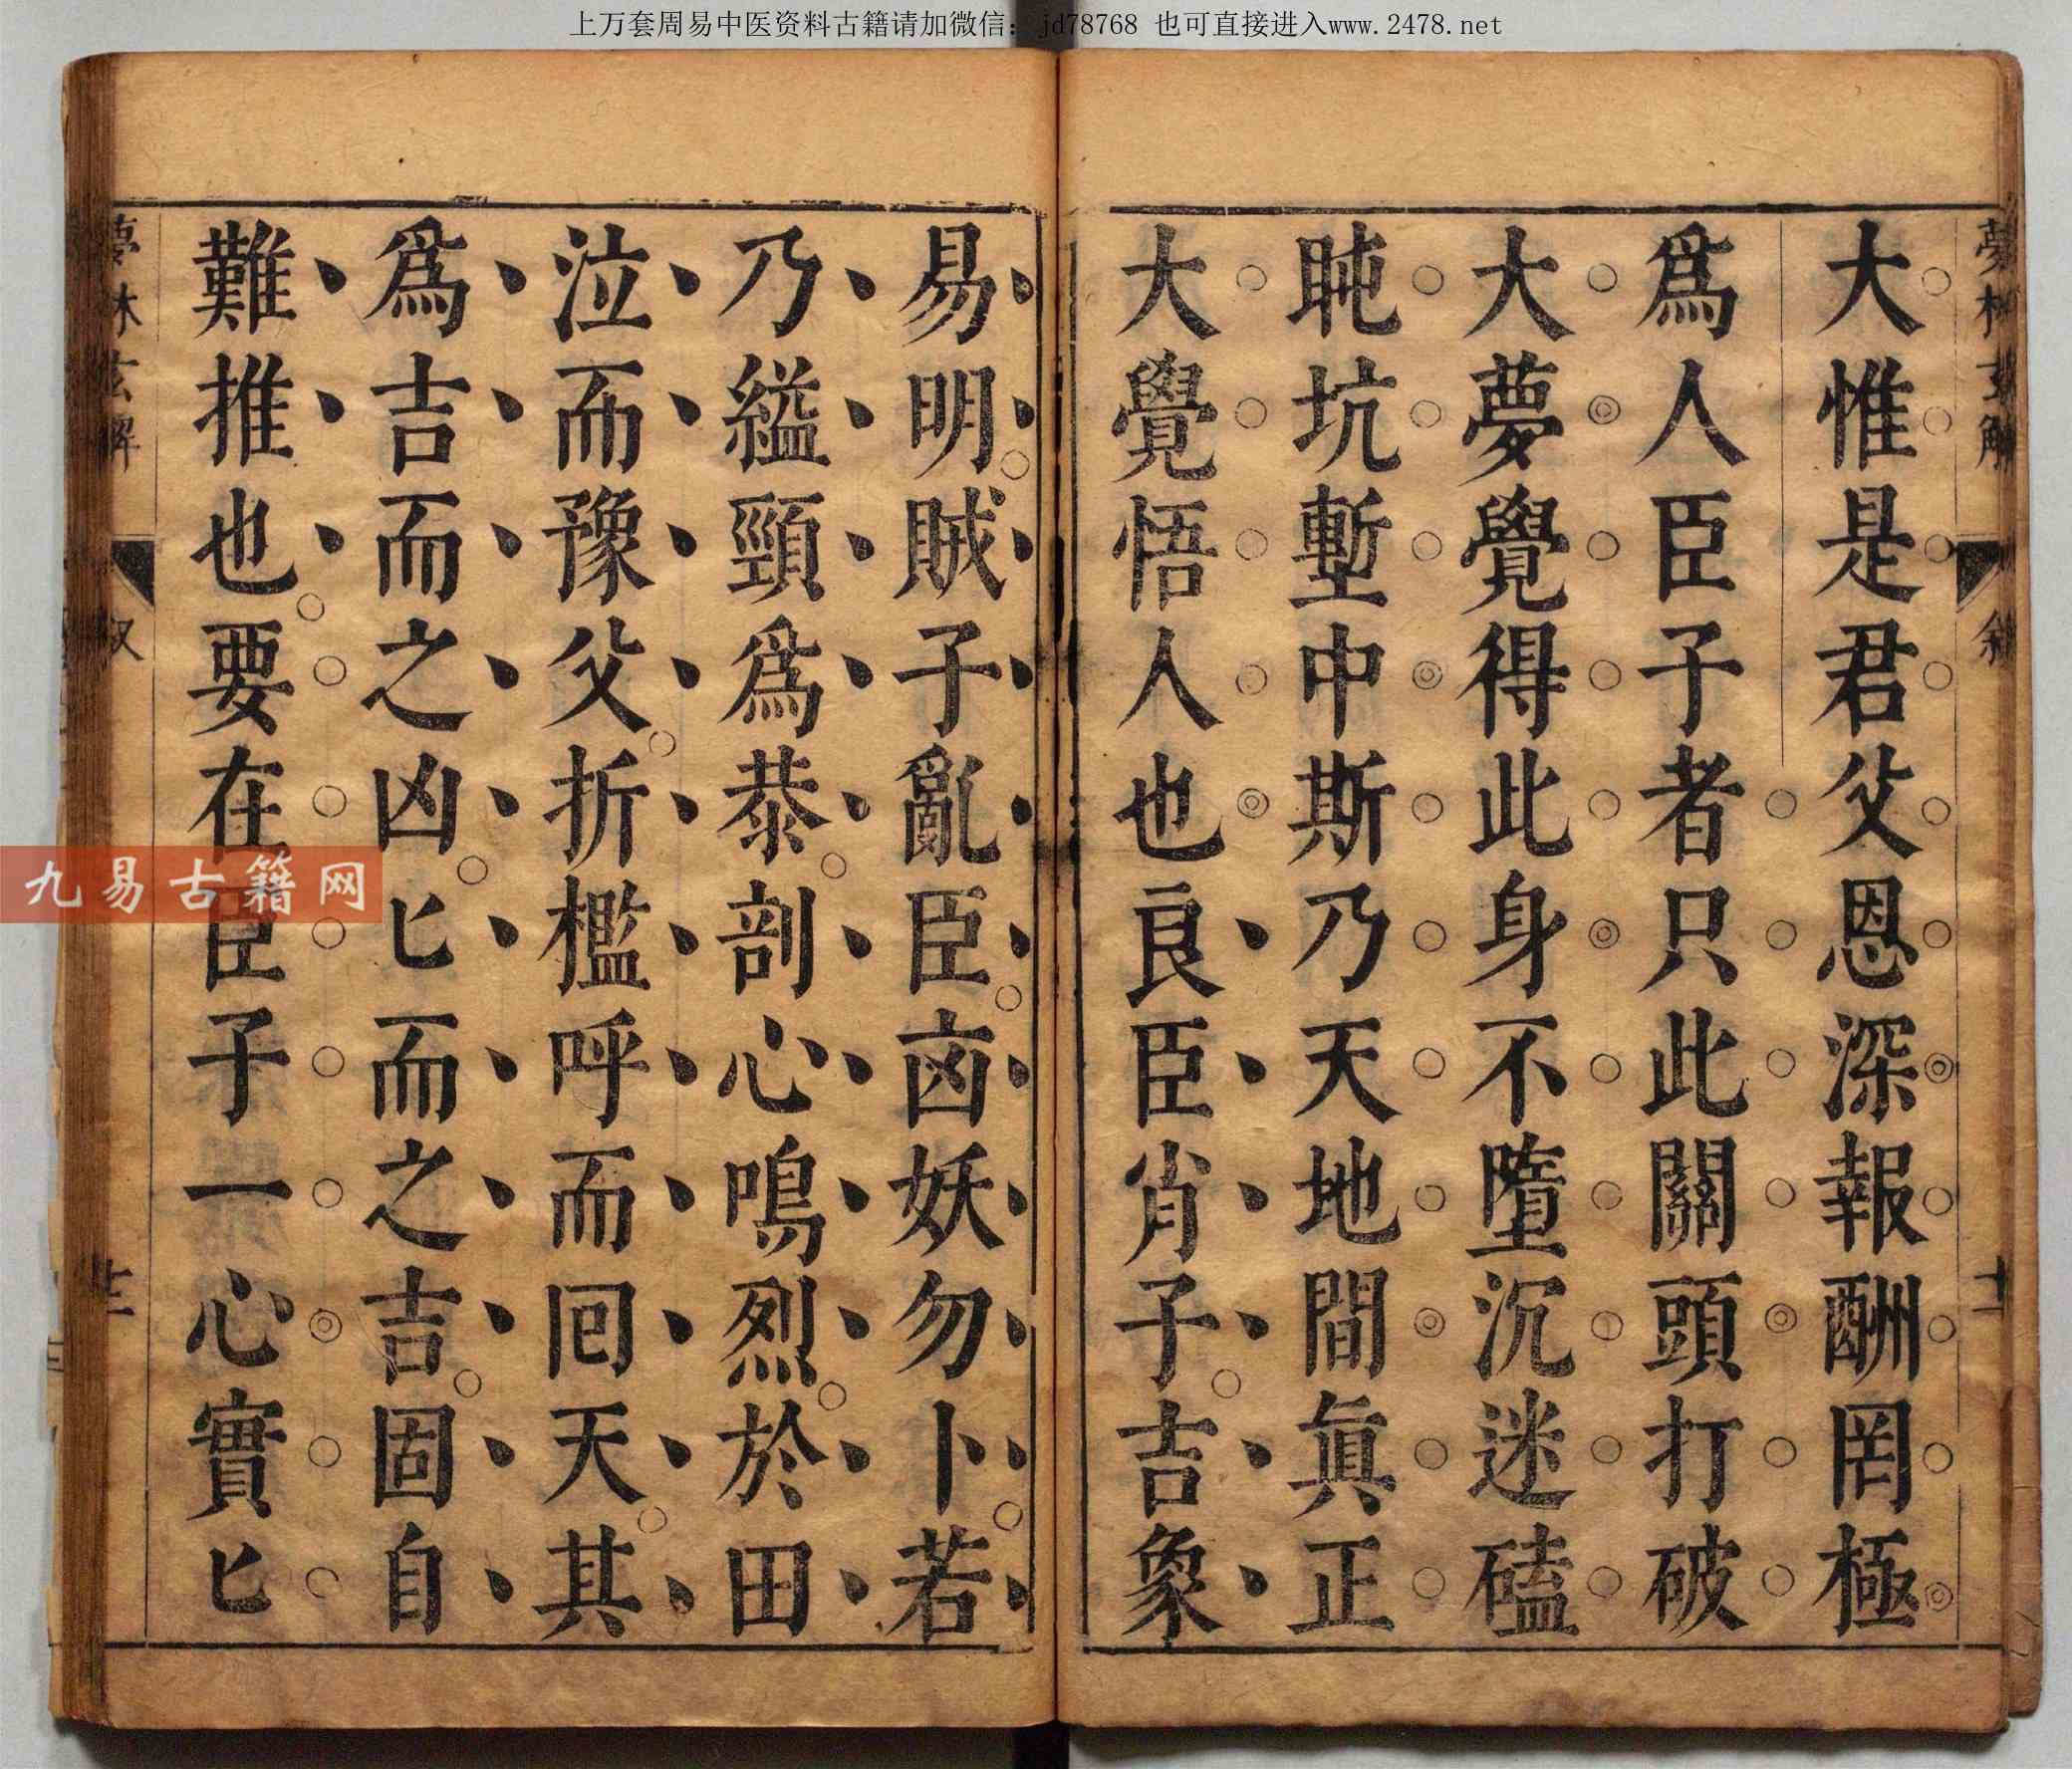 上万套周易中医资料古籍请加微信：jd78768 也可直接进入www.2478.net
夢林玄解
敘
十一
大惟是君父恩深報酬罔極
爲人臣子者只此關頭打破
大夢覺得此身不墮沉迷磕
盹坑塹中斯乃天地間眞正
大覺悟人也良臣肖子吉象
易明賊子亂臣凶妖勿卜若
乃縊頸爲恭剖心鳴烈於田
泣而豫父折檻呼而囘天其
爲吉而之凶匕而之吉固自
難推也要在臣子一心實匕
夢林玄解
九易古籍网